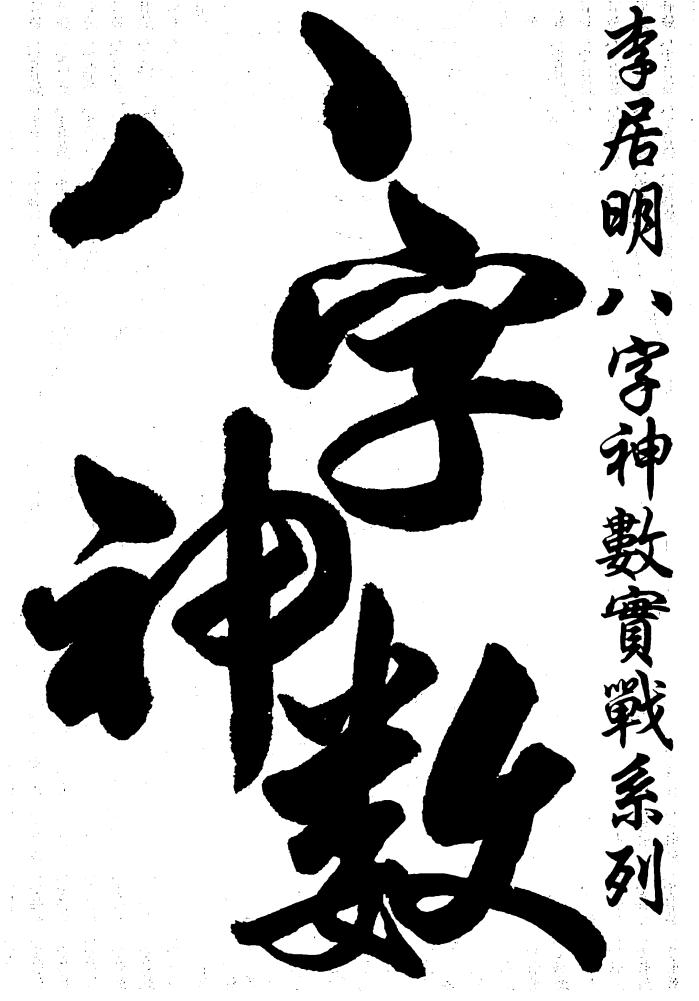 李居明八字神數實戰系列
八字神数